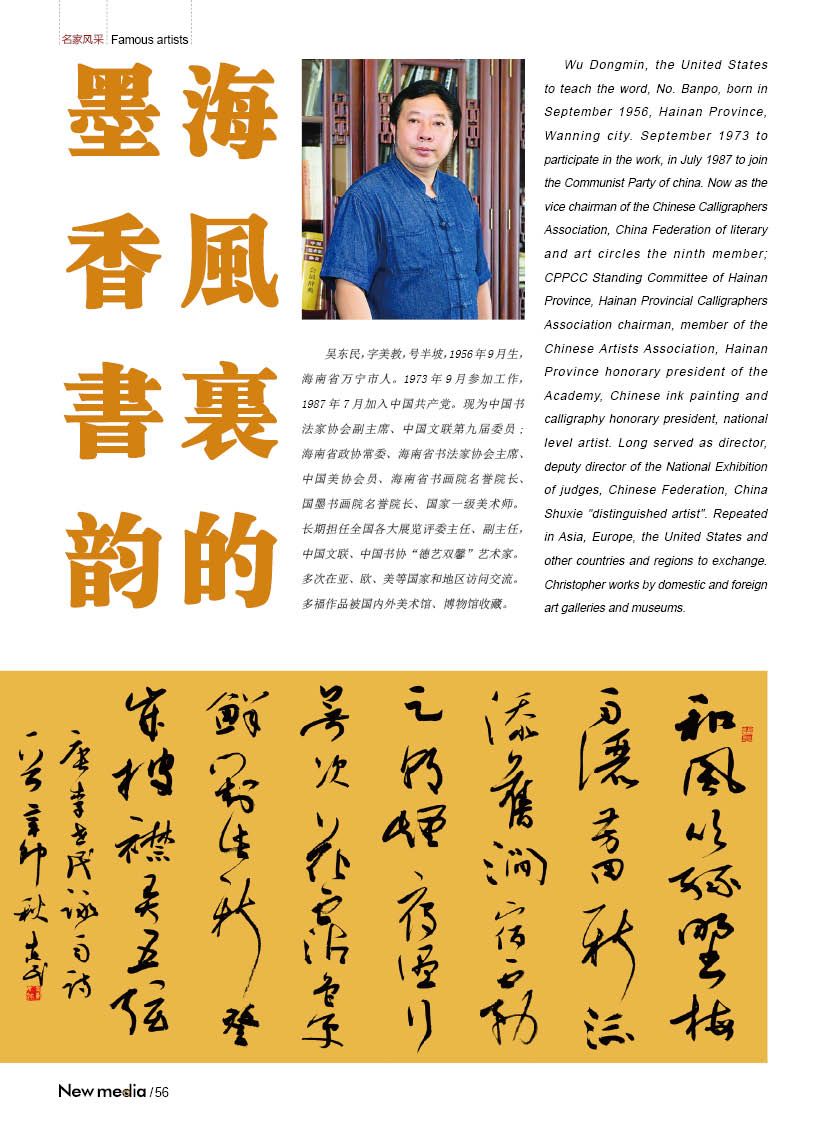 名家风采 Famous artists
海風裏的
墨香書韵
会员辞典
吴东民，字美教，号半坡，1956 年 9 月生，
海南省万宁市人。1973 年 9 月参加工作，
1987 年 7 月加入中国共产党。现为中国书
法家协会副主席、中国文联第九届委员；
海南省政协常委、海南省书法家协会主席、
中国美协会员、海南省书画院名誉院长、
国墨书画院名誉院长、国家一级美术师。
长期担任全国各大展览评委主任、副主任，
中国文联、中国书协“德艺双馨”艺术家。
多次在亚、欧、美等国家和地区访问交流。
多福作品被国内外美术馆、博物馆收藏。
Wu Dongmin, the United States
to teach the word, No. Banpo, born in
September 1956, Hainan Province,
Wanning city. September 1973 to
participate in the work, in July 1987 to join
the Communist Party of china. Now as the
vice chairman of the Chinese Calligraphers
Association, China Federation of literary
and art circles the ninth member;
CPPCC Standing Committee of Hainan
Province, Hainan Provincial Calligraphers
Association chairman, member of the
Chinese Artists Association, Hainan
Province honorary president of the
Academy, Chinese ink painting and
calligraphy honorary president, national
level artist. Long served as director,
deputy director of the National Exhibition
of judges, Chinese Federation, China
Shuxie "distinguished artist". Repeated
in Asia, Europe, the United States and
other countries and regions to exchange.
Christopher works by domestic and foreign
art galleries and museums.
和風吹綠野梅
雨灑芳田新流
添舊澗宿
朝煙雁濕行
無次花沾色更
鮮對此欣登
歲披襟弄五弦
唐李世民詠雨詩
一首辛卯秋東民
New media / 56